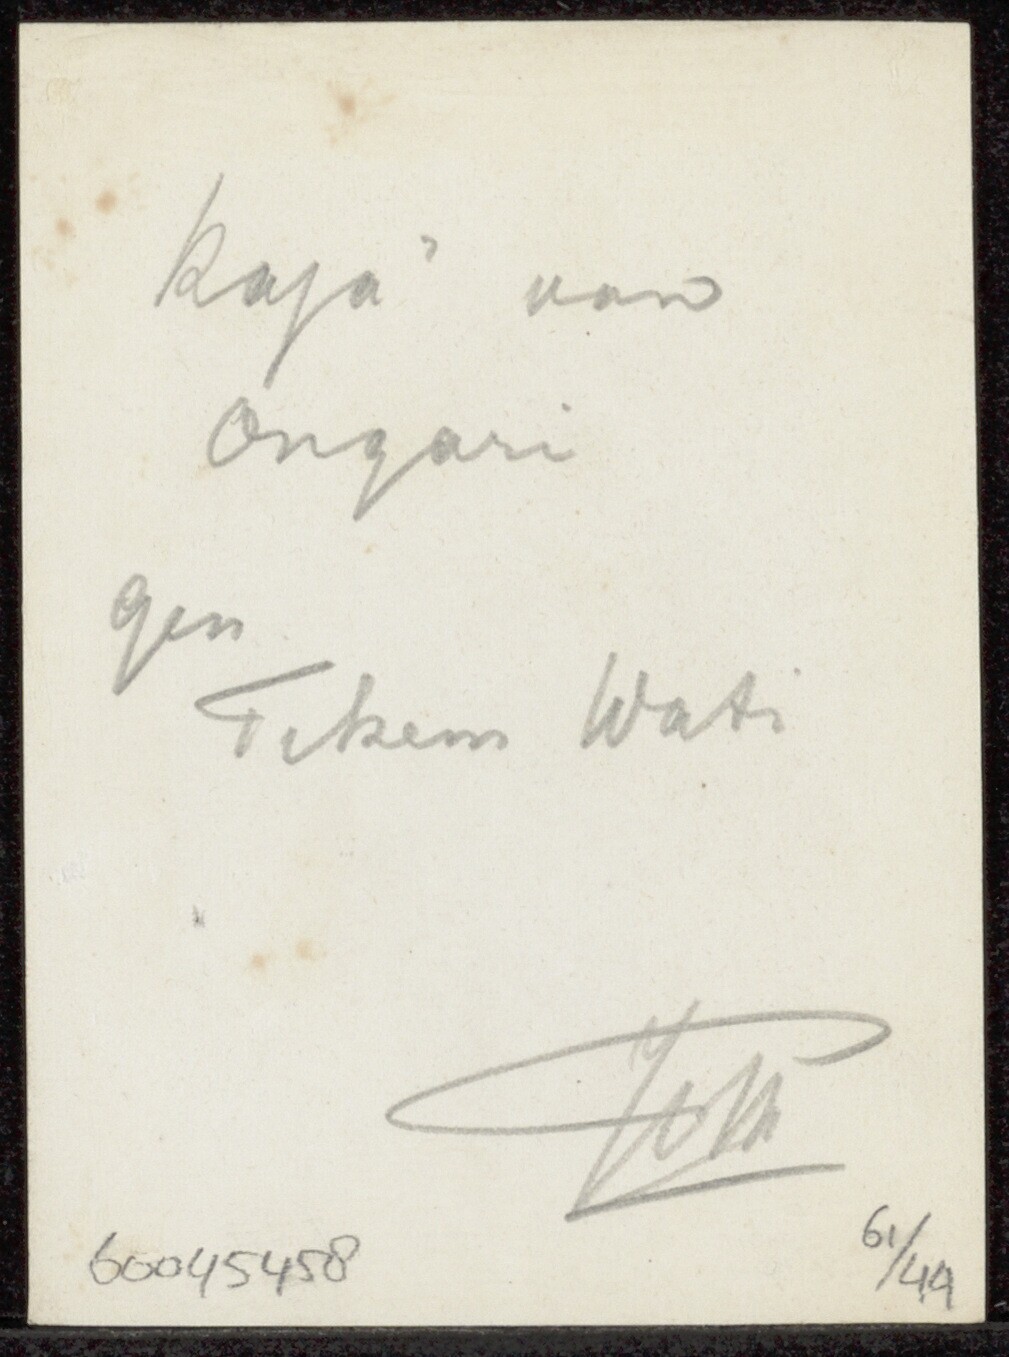 Kaja' van
Ongari
gen
Tekem Wati
60045458
61/49